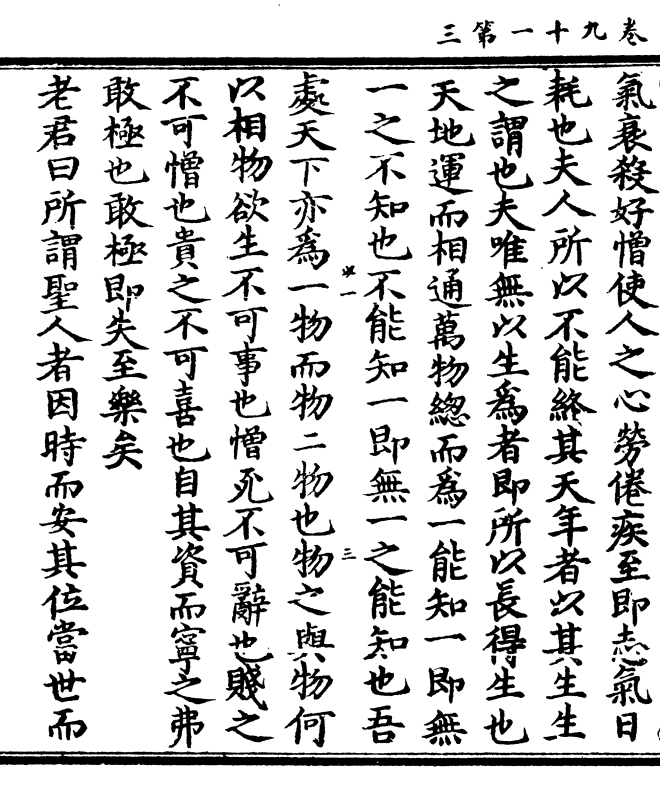 卷九十一第三
氣衰殺好憎使人之心勞倦疾至即志氣日
耗也夫人所以不能終其天年者以其生生
之謂也夫唯無以生爲者即所以長得生也
天地運而相通萬物總而爲一能知一即無
一之不知也不能知一即無一之能知也吾
處天下亦爲一物而物二物也物之與物何
以相物欲生不可事也憎死不可辭也賤之
不可憎也貴之不可喜也自其資而寧之弗
敢極也敢極即失至樂矣
老君曰所謂聖人者因時而安其位當世而